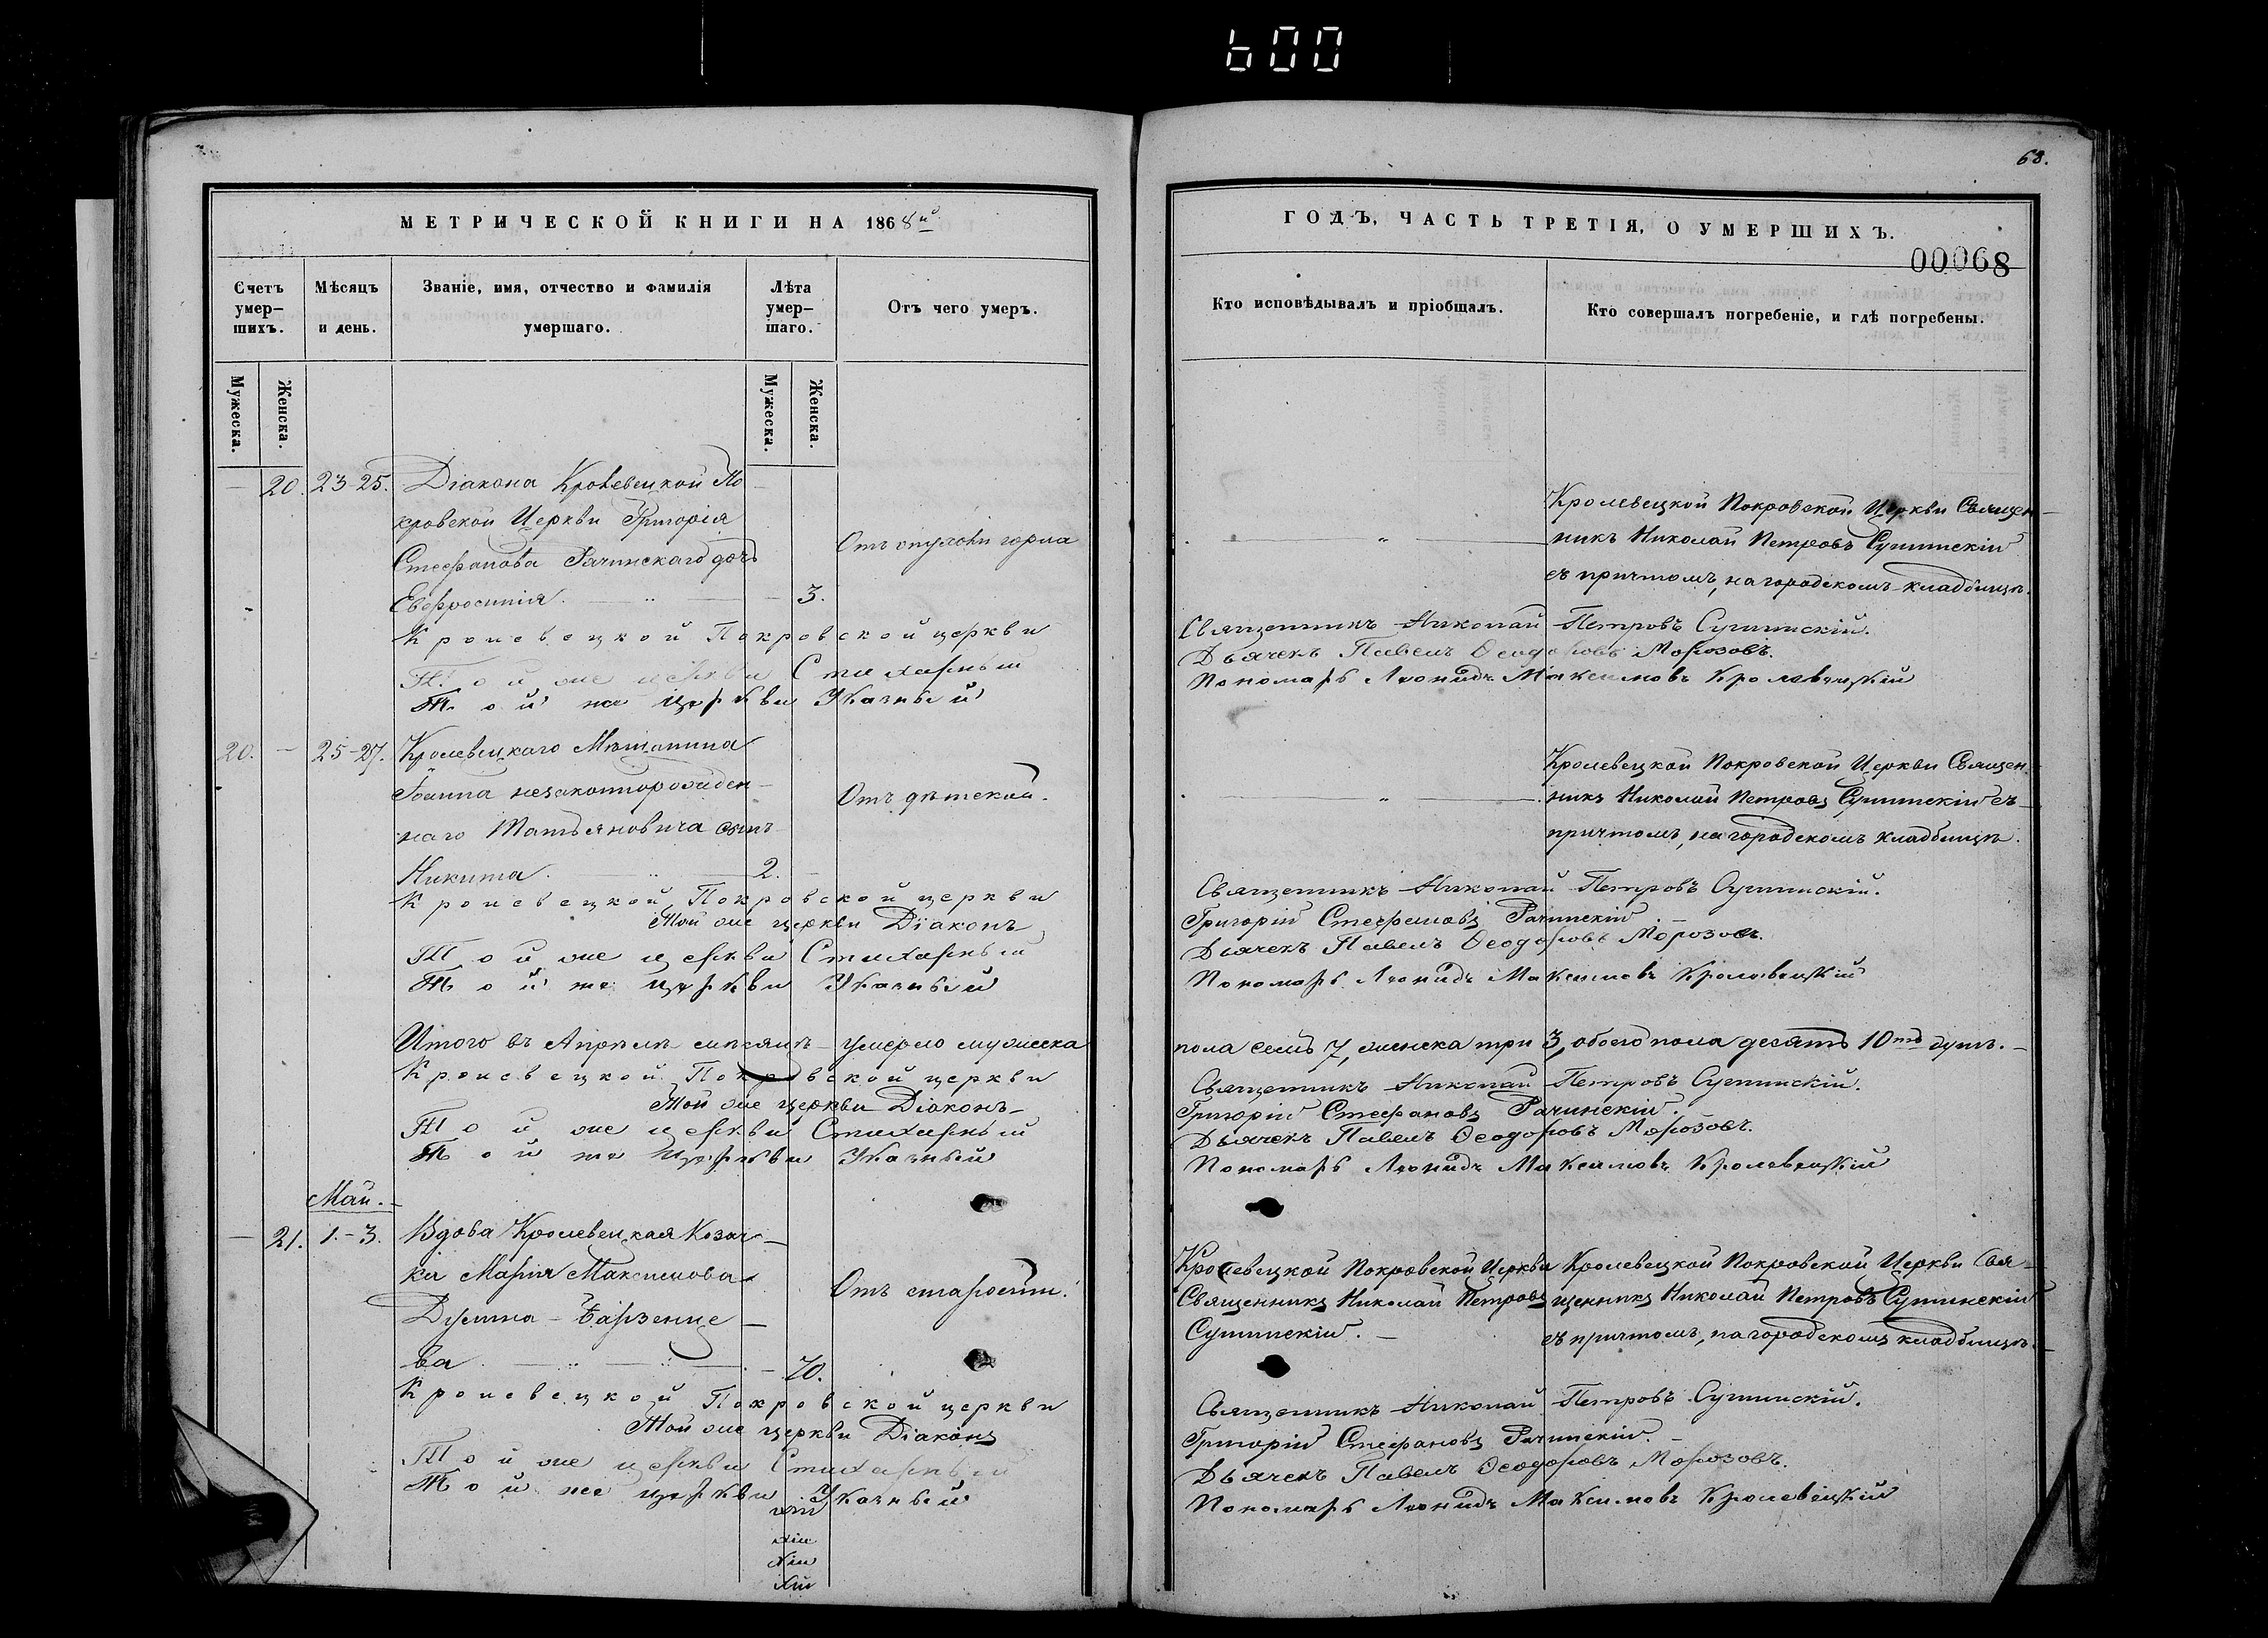 600
68.
МЕТРИЧЕСКОЙ КНИГИ НА 1868й
ГОДЪ, ЧАСТЬ ТРЕТІЯ, О УМЕРШИХЪ.
00068
Счетъ умер-шихъ.
Мѣсяцъ и день.
Званіе, имя, отчество и фамилія умершаго.
Лѣта умер-шаго.
Отъ чего умеръ.
Кто исповѣдывалъ и пріобщалъ.
Кто совершалъ погребеніе, и гдѣ погребены.
Мужеска.
Женска.
Мужеска.
Женска.
20. 23-25. Діакона Кролевецкой По
кровской Церкви Григорія
Стефанова Рачинскаго дочь
Евфросинія. 3.
Отъ опухоли горла
Кролевецкой Покровской Церкви Священ-
никъ Николай Петровъ
съ причтомъ, на городскомъ кладбищѣ.
Кролевецкой Покровской церкви Священникъ Николай Петровъ
Той же церкви Стихарный Дьячекъ Павелъ Ѳеодоровъ Морозовъ.
Той же церкви Указный Пономарь Леонидъ Максимовъ Кролевецкій
20. 25-27. Кролевецкаго Мѣщанина
Іоанна незаконнорожден-
наго Татьяновича сынъ
Никита. 2.
Отъ дѣтской.
Кролевецкой Покровской Церкви Священ-
никъ Николай Петровъ съ
причтомъ, на городскомъ кладбищѣ.
Кролевецкой Покровской церкви Священникъ Николай Петровъ
Той же церкви Діаконъ Григорій Стефановъ Рачинскій.
Той же церкви Стихарный Дьячекъ Павелъ Ѳеодоровъ Морозовъ.
Той же церкви Указный Пономарь Леонидъ Максимовъ Кролевецкій
Итого въ Апрѣлѣ мѣсяцѣ умерло мужеска пола семь 7, женска три 3, обоего пола десять 10ть душъ.
Кролевецкой Покровской церкви Священникъ Николай Петровъ
Той же церкви Діаконъ Григорій Стефановъ Рачинскій.
Той же церкви Стихарный Дьячекъ Павелъ Ѳеодоровъ Морозовъ.
Той же церкви Указный Пономарь Леонидъ Максимовъ Кролевецкій
Май.
21. 1.-3. Вдова Кролевецкая Козач-
ка Марія Максимова
ва 70.
Отъ старости.
Кролевецкой Покровской Церкви
Священникъ Николай Петровъ
Кролевецкой Покровской Церкви Свя-
щенникъ Николай Петровъ
съ причтомъ, на городскомъ кладбищѣ.
Кролевецкой Покровской церкви Священникъ Николай Петровъ
Той же церкви Діаконъ Григорій Стефановъ Рачинскій.
Той же церкви Стихарный Дьячекъ Павелъ Ѳеодоровъ Морозовъ.
Той же церкви Указный Пономарь Леонидъ Максимовъ Кролевецкій